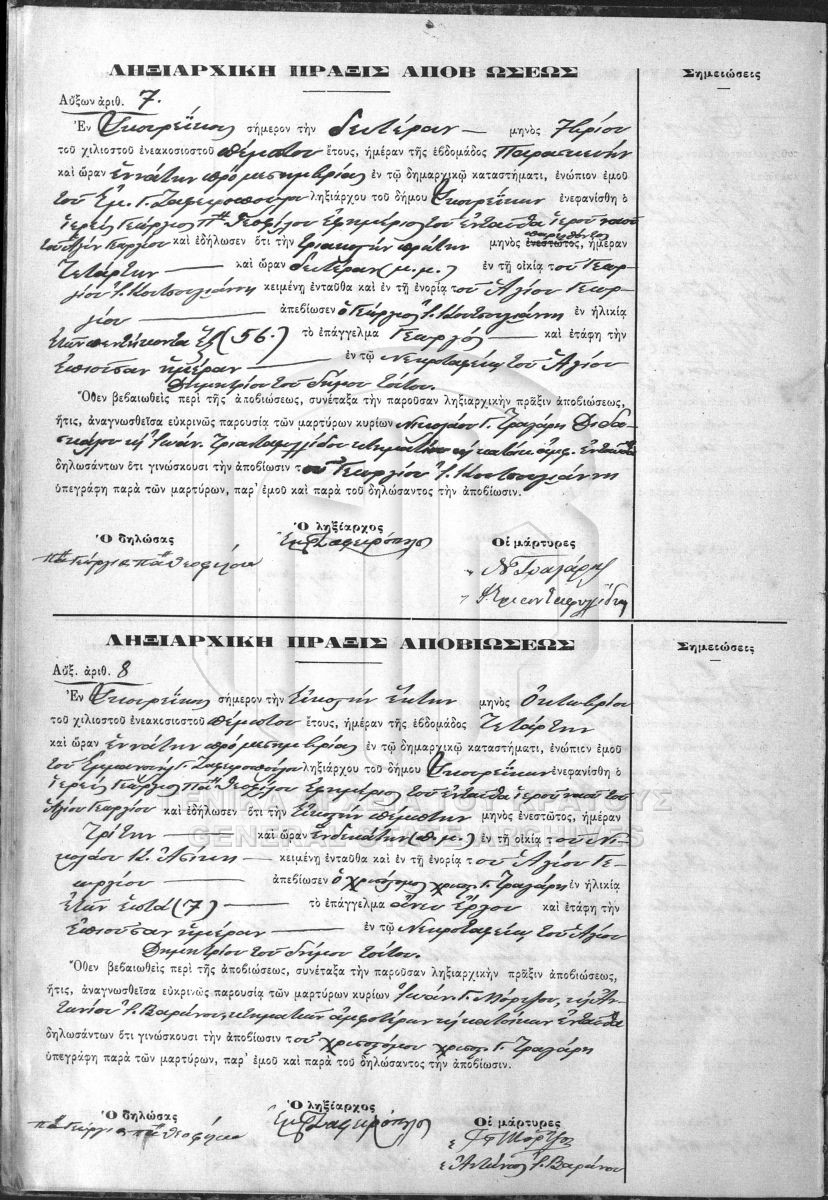 ΛΗΞΙΑΡΧΙΚΗ ΠΡΑΞΙΣ ΑΠΟΒ ΩΣΕΩΣ
Σημειώσεις
Αὔξων ἀριθ. 7.
Ἐν Σκοπείκῳ σήμερον τὴν Δευτέραν — μηνὸς 7βρίου
τοῦ χιλιοστοῦ ἐνεακοσιοστοῦ πέμπτου ἔτους, ἡμέραν τῆς ἑβδομάδος Παρασκευὴν
καὶ ὥραν ἐννάτην πρὸ μεσημβρίας ἐν τῷ δημαρχικῷ καταστήματι, ἐνώπιον ἐμοῦ
τοῦ Ἐμ. Γ. Ζαφειροπούλου ληξιάρχου τοῦ δήμου ἐνεφανίσθη ὁ
ἱερεὺς Γεώργιος Ππ Θεοφίλου ἐφημέριος τοῦ ἐνταῦθα ἱεροῦ ναοῦ
παρελθόντος
τοῦ Ἁγίου Γεωργίου καὶ ἐδήλωσεν ὅτι τὴν τριακοστὴν πρώτην μηνὸς ἐνεστῶτος, ἡμέραν
Τετάρτην — καὶ ὥραν δευτέραν (μ.μ.) ἐν τῇ οἰκίᾳ τοῦ Γεωρ-
γίου κειμένῃ ἐνταῦθα καὶ ἐν τῇ ἐνορίᾳ τοῦ Ἁγίου Γεωρ-
γίου — ἀπεβίωσεν ὁ Γεώργιος ἐν ἡλικίᾳ
ἐτῶν πεντήκοντα ἓξ (56.) τὸ ἐπάγγελμα Γεωργός — καὶ ἐτάφη τὴν
ἐπιοῦσαν ἡμέραν — ἐν τῷ Νεκροταφείῳ τοῦ Ἁγίου
Δημητρίου τοῦ δήμου τούτου.
Ὅθεν βεβαιωθεὶς περὶ τῆς ἀποβιώσεως, συνέταξα τὴν παροῦσαν ληξιαρχικὴν πρᾶξιν ἀποβιώσεως,
ἥτις, ἀναγνωσθεῖσα εὐκρινῶς παρουσίᾳ τῶν μαρτύρων κυρίων Νικολάου Γ. Τραγάρη Διδα-
σκάλου κ Ἰωάν. Τριανταφυλλίδου κτηματίου κατοίκ ἀμφ. ἐνταῦθα
δηλωσάντων ὅτι γινώσκουσι τὴν ἀποβίωσιν τοῦ Γεωργίου
ὑπεγράφη παρὰ τῶν μαρτύρων, παρ' ἐμοῦ καὶ παρὰ τοῦ δηλώσαντος τὴν ἀποβίωσιν.
Ὁ δηλώσας
Ὁ ληξίαρχος
Οἱ μάρτυρες
Ἐμ Γ Ζαφειρόπουλος
Γεώργιος Θεοφίλου
Ν Τραγάρης
ΛΗΞΙΑΡΧΙΚΗ ΠΡΑΞΙΣ ΑΠΟΒΙΩΣΕΩΣ
Σημειώσεις
Αὔξ. ἀριθ. 8
Ἐν σήμερον τὴν Εἰκοστὴν ἕκτην μηνὸς Ὀκτωβρίου
τοῦ χιλιοστοῦ ἐνεακοσιοστοῦ πέμπτου ἔτους, ἡμέραν τῆς ἑβδομάδος Τετάρτην
καὶ ὥραν ἐννάτην πρὸ μεσημβρίας ἐν τῷ δημαρχικῷ καταστήματι, ἐνώπιον ἐμοῦ
τοῦ Ἐμμανουὴλ Γ. Ζαφειροπούλου ληξιάρχου τοῦ δήμου ἐνεφανίσθη ὁ
ἱερεὺς Γεώργιος Ππ Θεοφίλου ἐφημέριος τοῦ ἐνταῦθα ἱεροῦ ναοῦ τοῦ
Ἁγίου Γεωργίου καὶ ἐδήλωσεν ὅτι τὴν Εἰκοστὴν πέμπτην μηνὸς ἐνεστῶτος, ἡμέραν
Τρίτην — καὶ ὥραν ἑνδεκάτην (π.μ.) ἐν τῇ οἰκίᾳ τοῦ Νι-
κολάου Κ. — κειμένῃ ἐνταῦθα καὶ ἐν τῇ ἐνορίᾳ τοῦ Ἁγίου Γε-
ωργίου — ἀπεβίωσεν ὁ Χρυσόστομος Γ. Τραγάρη ἐν ἡλικίᾳ
ἐτῶν ἑπτά (7) — τὸ ἐπάγγελμα ἄνευ ἔργου καὶ ἐτάφη τὴν
ἐπιοῦσαν ἡμέραν — ἐν τῷ Νεκροταφείῳ τοῦ Ἁγίου
Δημητρίου τοῦ δήμου τούτου.
Ὅθεν βεβαιωθεὶς περὶ τῆς ἀποβιώσεως, συνέταξα τὴν παροῦσαν ληξιαρχικὴν πρᾶξιν ἀποβιώσεως,
ἥτις, ἀναγνωσθεῖσα εὐκρινῶς παρουσίᾳ τῶν μαρτύρων κυρίων Ἰωάν. Γ. Μόρτζου, Ἀν-
τωνίου Βαράνου, κτηματιῶν ἀμφοτέρων κατοίκων ἐνταῦθα
δηλωσάντων ὅτι γινώσκουσι τὴν ἀποβίωσιν τοῦ Χρυσοστόμου Γ. Τραγάρη
ὑπεγράφη παρὰ τῶν μαρτύρων, παρ' ἐμοῦ καὶ παρὰ τοῦ δηλώσαντος τὴν ἀποβίωσιν.
Ὁ δηλώσας
Ὁ ληξίαρχος
Οἱ μάρτυρες
Ἐμ Γ Ζαφειρόπουλος
Γεώργιος Θεοφίλου
Μόρτζος
Ἀντώνιος Βαράνου
ΓΕΝΙΚΑ ΑΡΧΕΙΑ ΤΟΥ ΚΡΑΤΟΥΣ
GENERAL STATE ARCHIVES